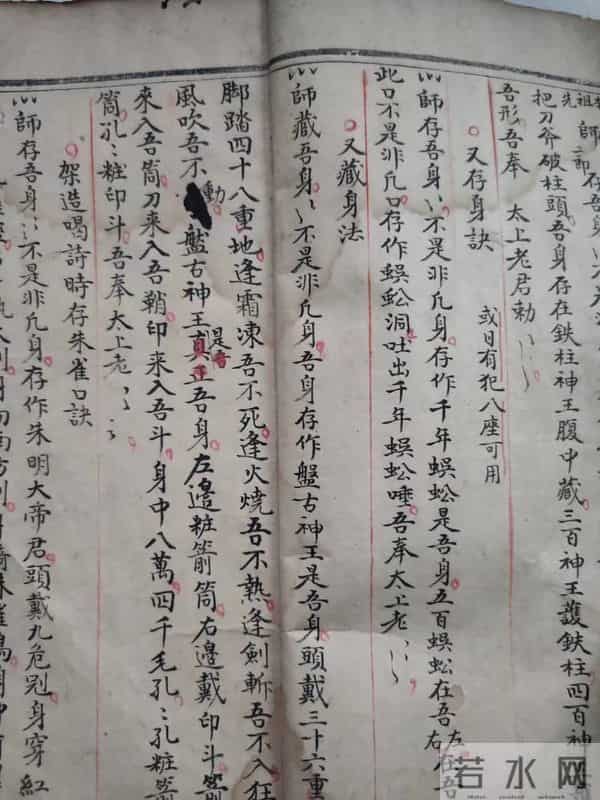 祖師存吾身
先
把刀斧破柱頭吾身存在鉄柱神王腹中藏三百神王護鉄柱四百神
吾形吾奉 太上老君勅
又存身訣 或日有犯八座可用
師存吾身〻不是非凡身存作千年蜈蚣是吾身五百蜈蚣在吾左右在吾
此口不是非凡口存作蜈蚣洞吐出千年蜈蚣唾吾奉太上老〻〻
又藏身法
師藏吾身〻不是非凡身吾身存作盤古神王是吾身頭戴三十六重
脚踏四十八重地逢霜凍吾不死逢火燒吾不熟逢劍斬吾不入狂
風吹吾不動盤古神王真正是吾吾身左邊粧箭筒右邊戴印斗箭
來入吾筒刀來入吾鞘印來入吾斗身中八萬四千毛孔〻孔粧箭
筒孔〻粧印斗吾奉太上老〻〻
架造喝詩時存朱雀口訣
師存吾身〻不是非凡身存作朱明大帝君頭戴九危冠身穿紅
若水网